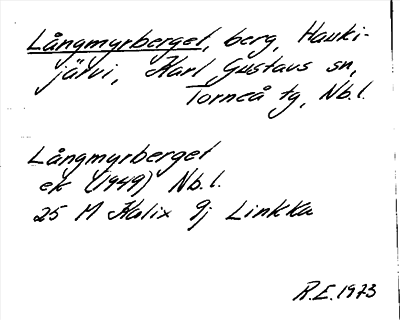 Långmyrberget, berg, Hauki-
järvi, Karl Gustavs sn,
Torneå tg, Nb.l.
Långmyrberget
ek (1949) Nb.l.
25 M Kalix 9j Linkka
R.E. 1973